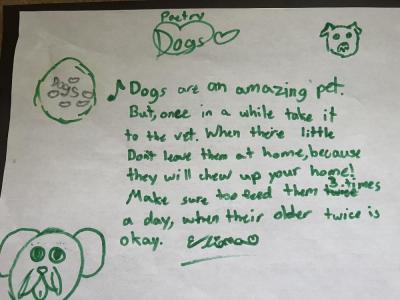 Poetry
Dogs
Dogs
Dogs are an amazing pet.
But, once in a while take it
to the vet. When there little
Don't leave them at home, because
they will chew up your home!
3 times
Make sure too feed them twice
a day, when their older twice is
okay.